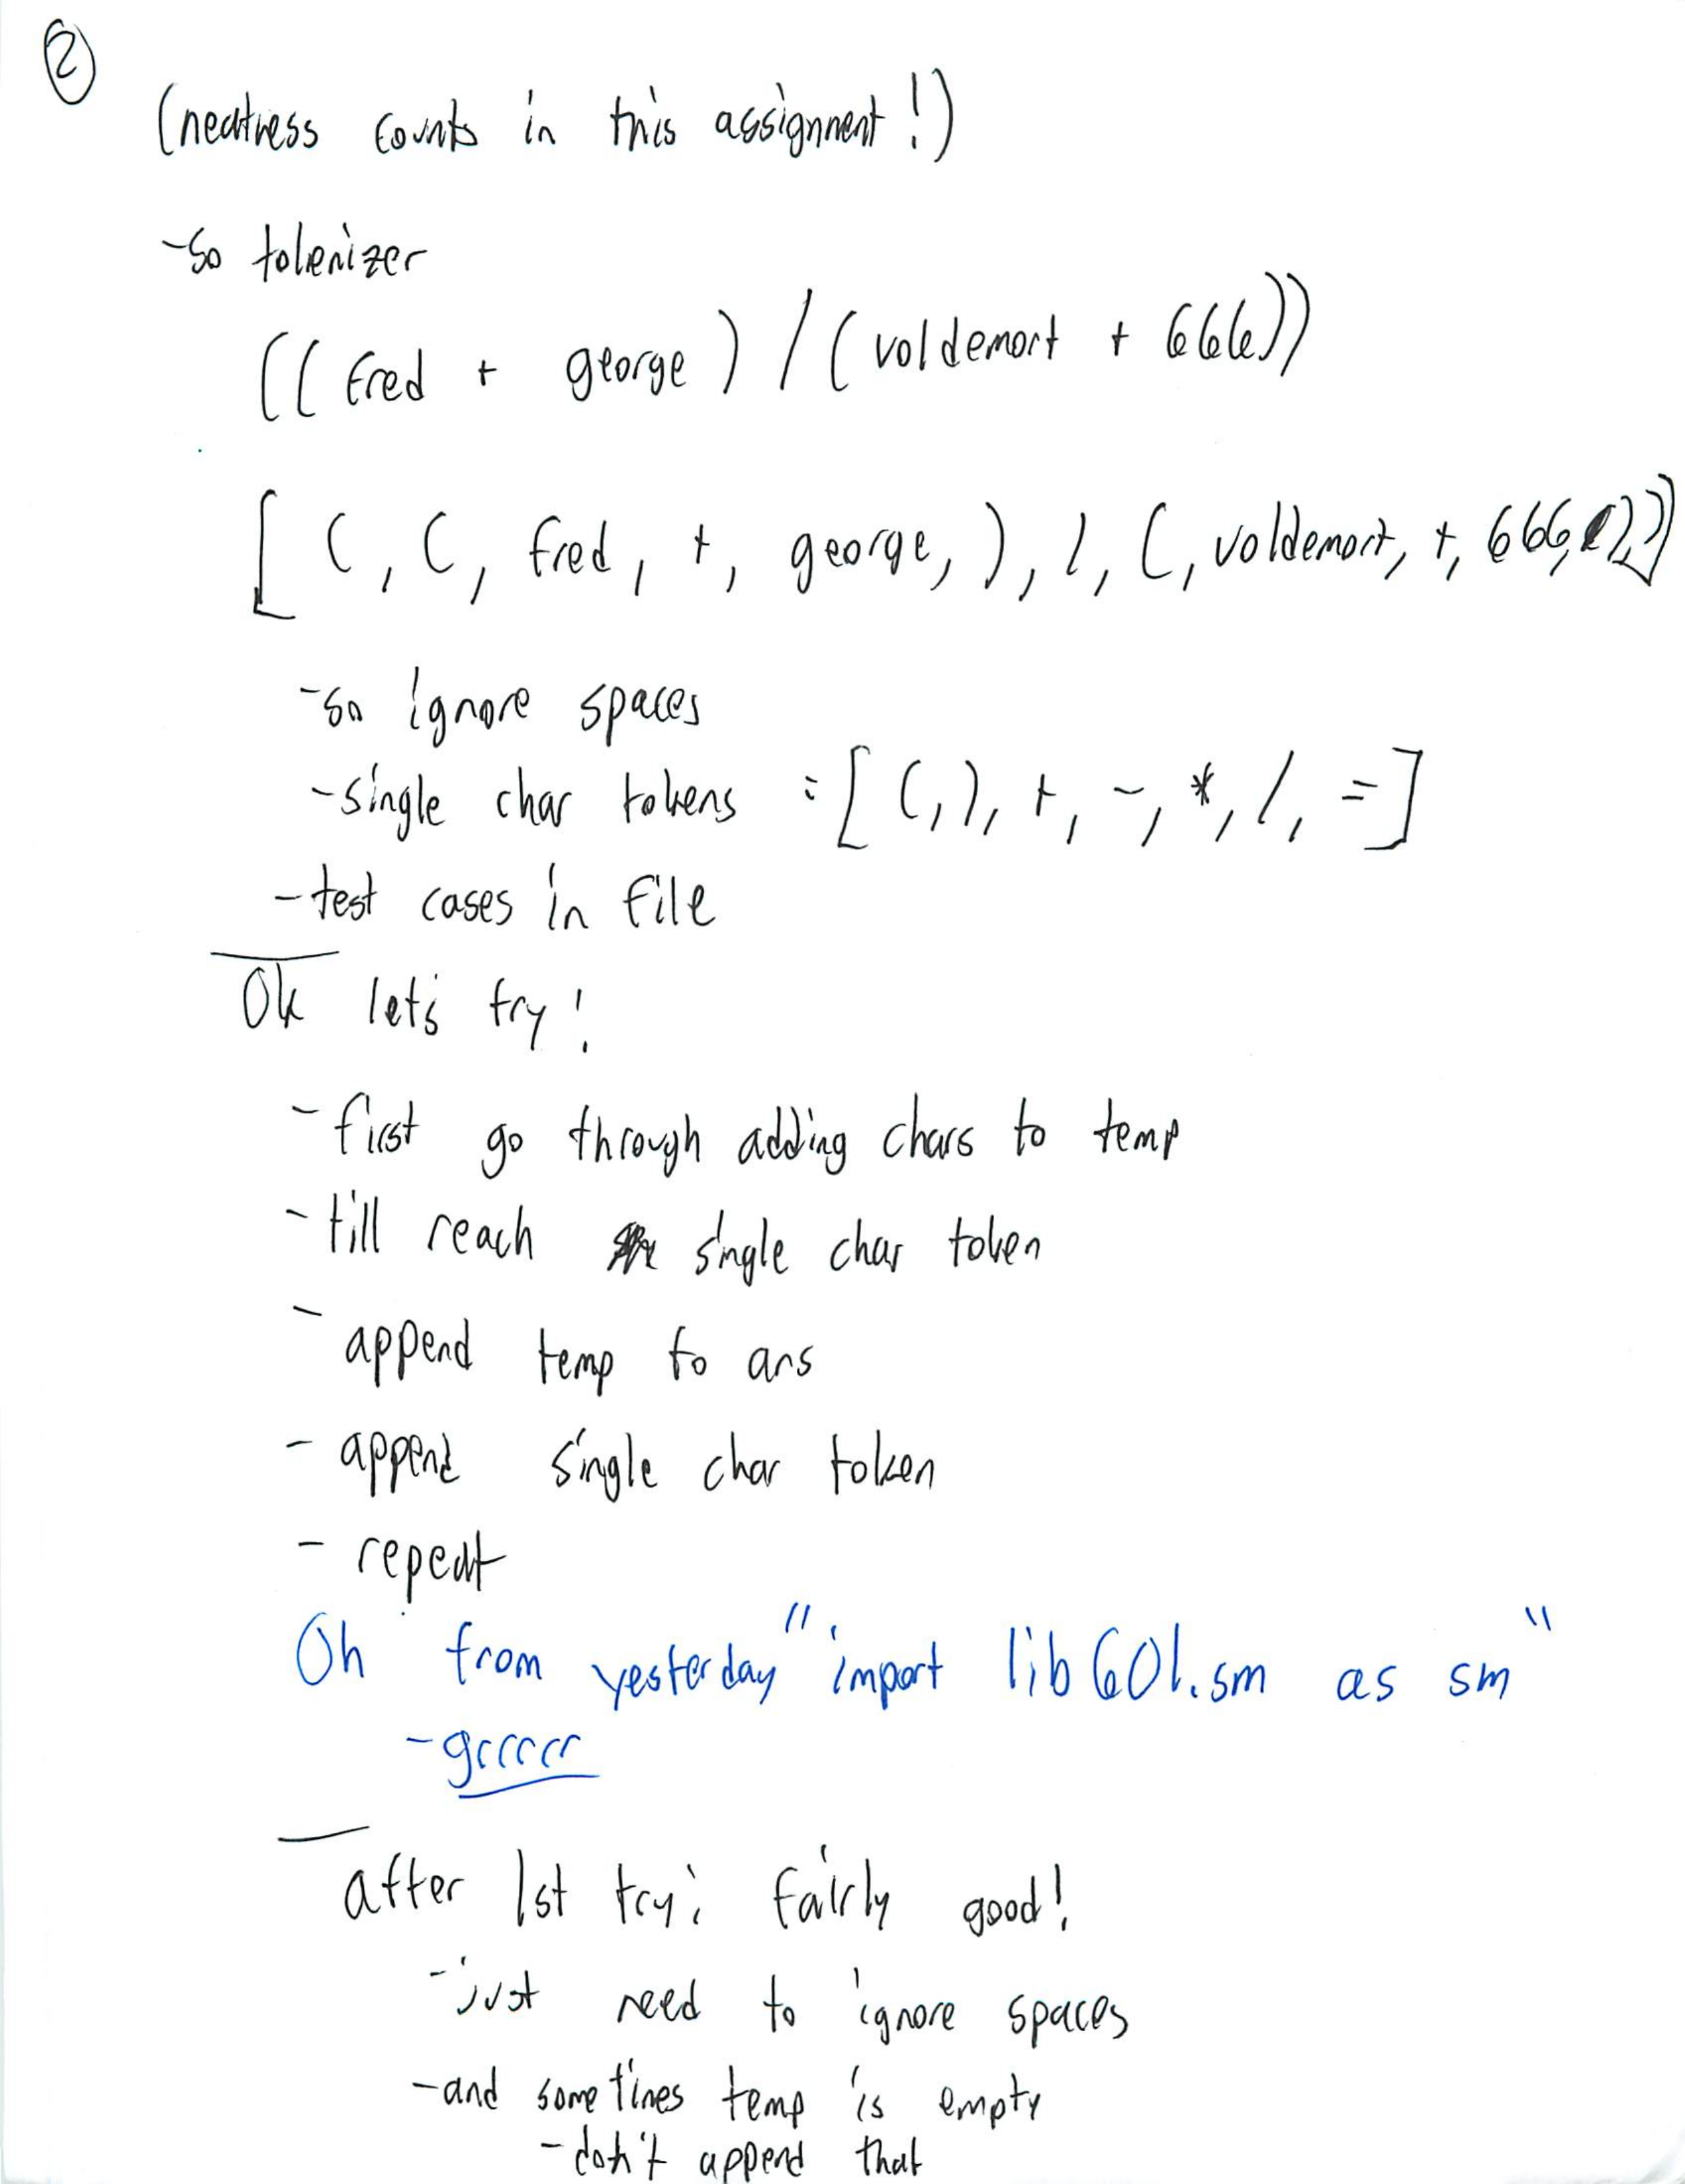 ②
(neatness counts in this assignment!)
-So tokenizer
((fred + george) / (voldemort + 666))
[ (, (, fred, +, george, ), /, (, voldemort, +, 666, ), )]
-so ignore spaces
-single char tokens = [ (, ), +, -, *, /, =]
-test cases in file
Ok lets try!
- first go through adding chars to temp
- till reach single char token
- append temp to ans
- append single char token
- repeat
Oh from yesterday "import lib601.sm as sm"
-grrrrr
after 1st try: fairly good!
-just need to ignore spaces
-and sometimes temp is empty
-don't append that